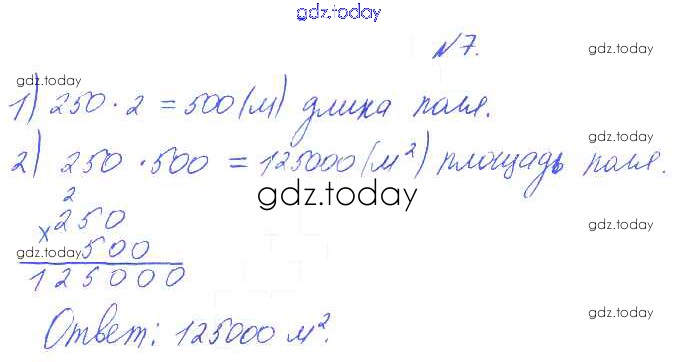 gdz.today
№7.
gdz.today
gdz.today
1) 250 · 2 = 500 (м) длина поля.
gdz.today
2) 250 · 500 = 125000 (м²) площадь поля.
gdz.today
2
× 250
gdz.today
500
gdz.today
125000
Ответ: 125000 м².
gdz.today